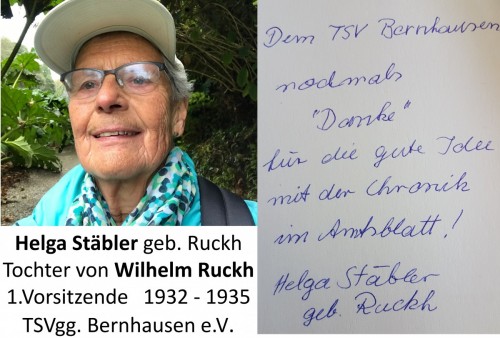 Helga Stäbler geb. Ruckh
Tochter von Wilhelm Ruckh
1.Vorsitzende 1932 - 1935
TSVgg. Bernhausen e.V.
Dem TSV Bernhausen
nochmals
"Danke"
für die gute Idee
mit der Chronik
im Amtsblatt!
Helga Stäbler
geb. Ruckh